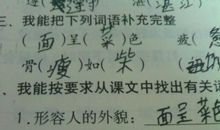 三、我能把下列词语补充完整
(面)呈(菜)色 疲(
骨(瘦)如(柴) (
、我能按要求从课文中找出有关词
1.形容人的外貌：面呈菜色